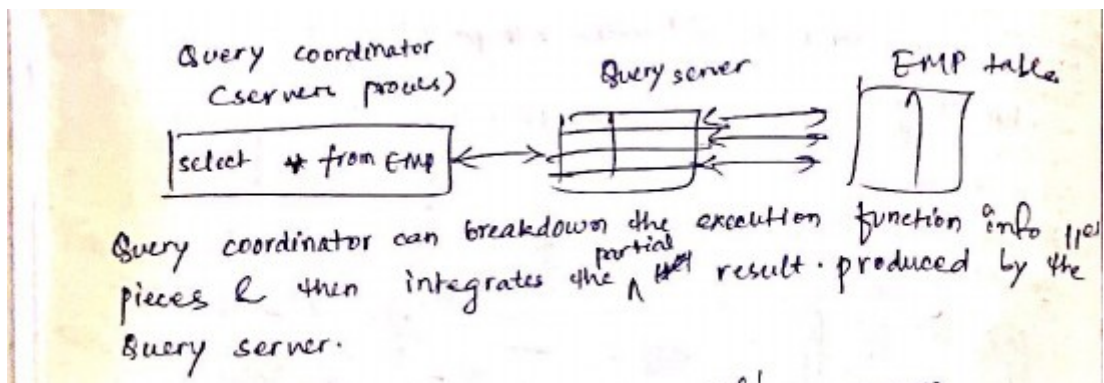 Query coordinator
(server process)
Query server
EMP table
select * from EMP
Query coordinator can breakdown the execution function info ||el
pieces & then integrates the partial result. produced by the
Query server.